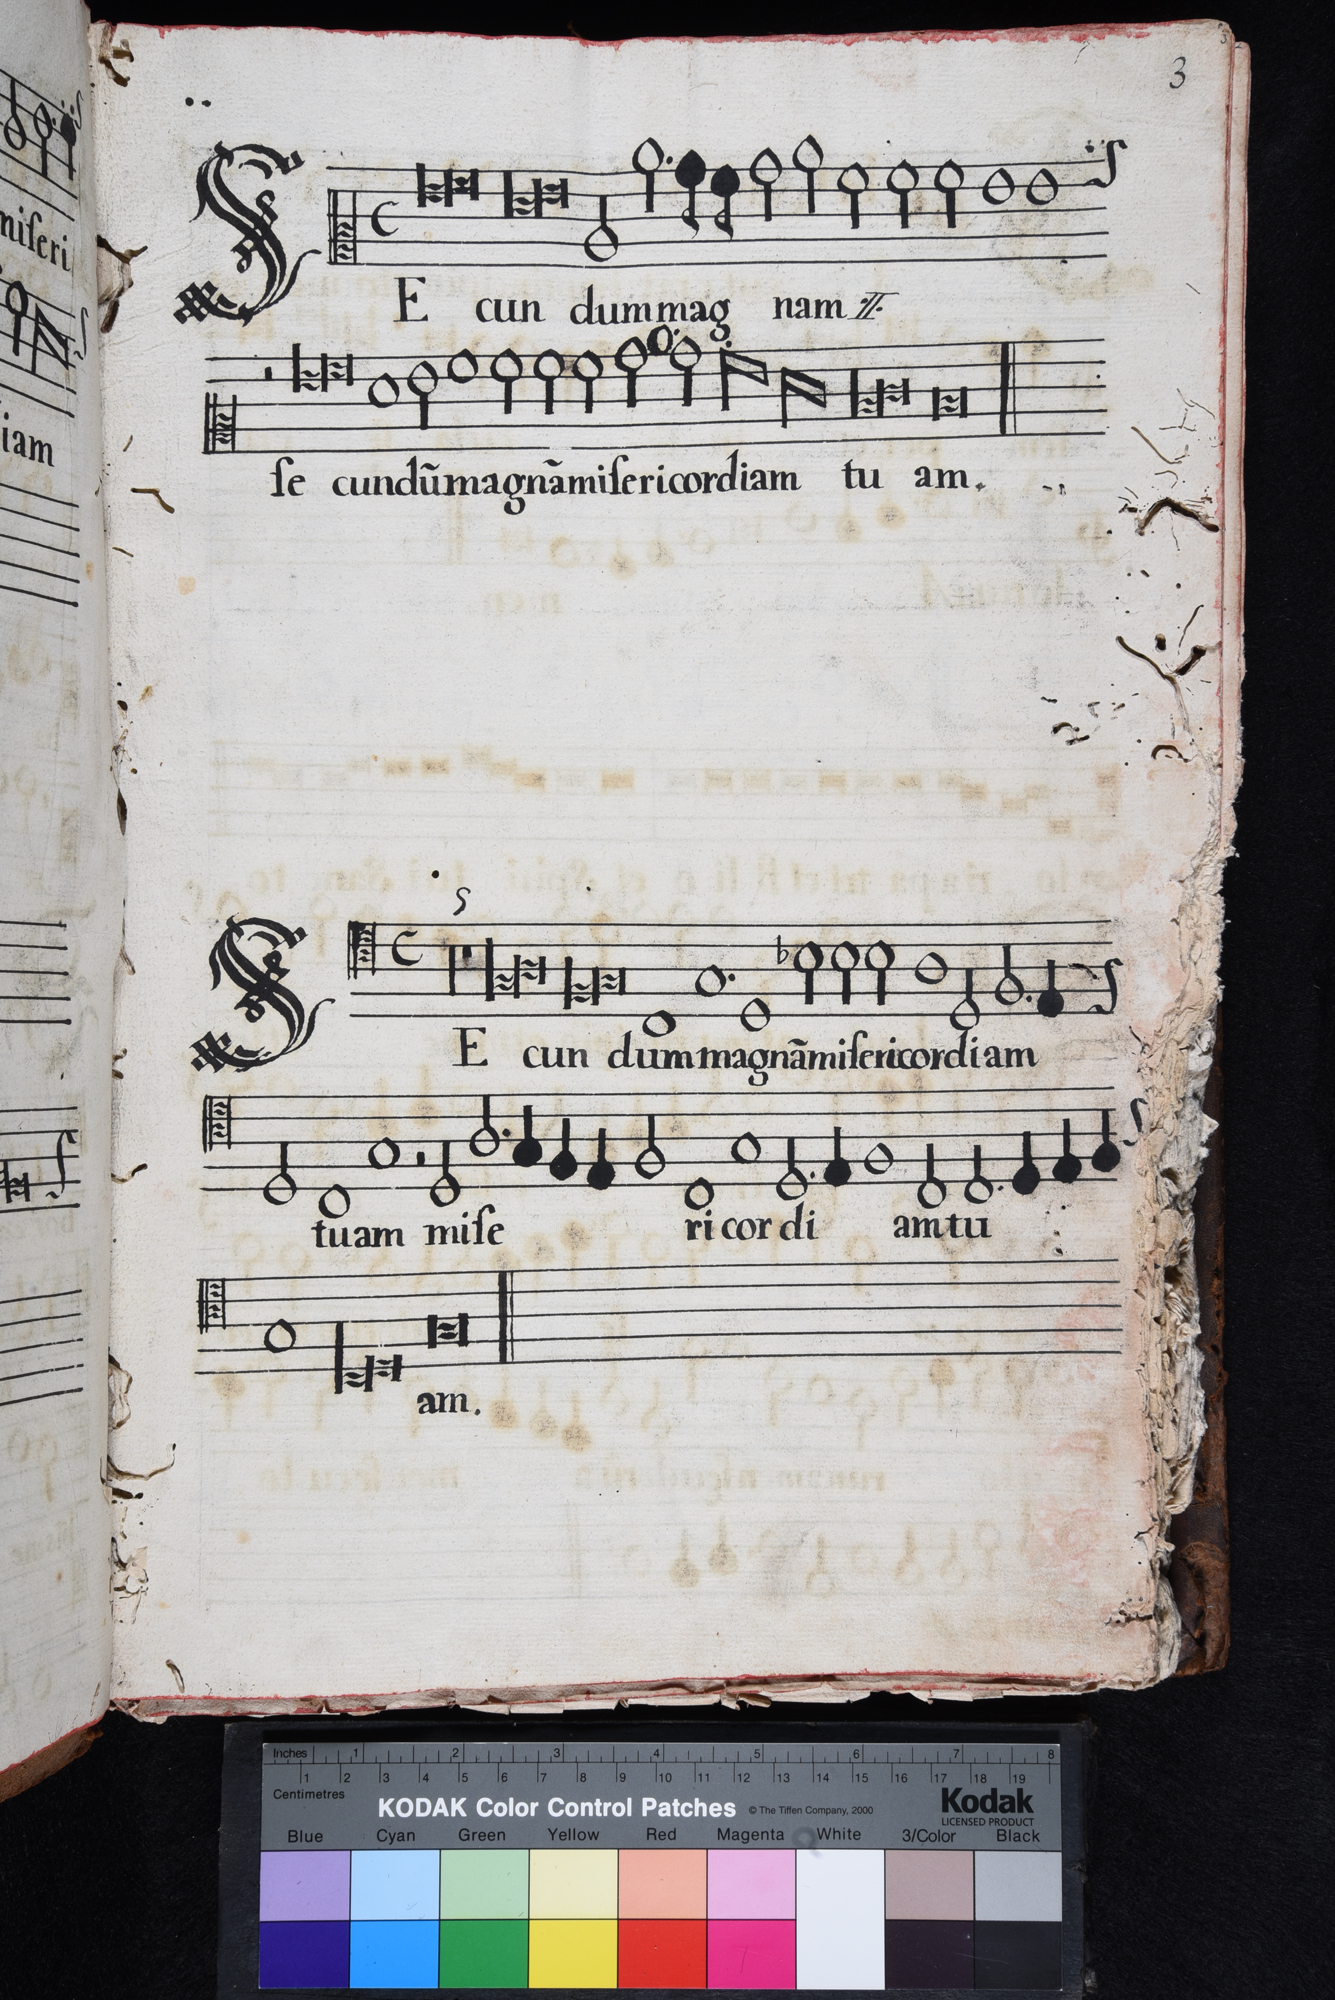 3
miſeri
SE cun dum mag nam :II:
iam
ſe cundũ magnã miſericordiam tu am.
SE cun dum magnã miſericordiam
tuam miſe ri cor di am tu
am.
Inches 1 2 3 4 5 6 7 8
Centimetres 1 2 3 4 5 6 7 8 9 10 11 12 13 14 15 16 17 18 19
KODAK Color Control Patches © The Tiffen Company, 2000 Kodak
LICENSED PRODUCT
Blue Cyan Green Yellow Red Magenta White 3/Color Black